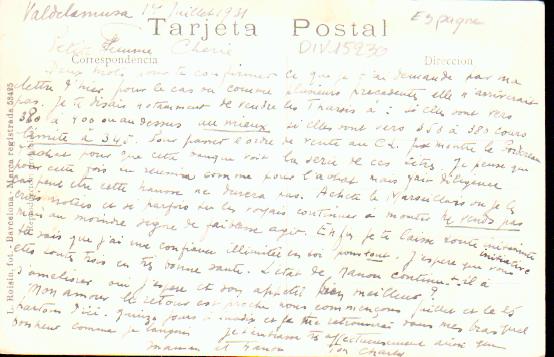 Valdelamusa 1er Juillet 1931
Espagne
Tarjeta Postal
DIV.15930
Petite Femme Chérie
Correspondencia
Direccion
Deux mots pour te confirmer ce que je t'ai demandé par ma
lettre d'hier pour le cas où comme plusieurs precedentes elle n'arriverait
pas. Je te disais notamment de vendre les Tharsis à : si elles vont vers
380 à 400 ou au dessus au mieux si elles vont vers 350 à 380 cours
limite à 345. Pour passer l'ordre de vente au CL
l'achat pour que cette banque voit la série de ces titres. Je pense que
pour cette fois en comme pour l'achat mais faire diligence
car peut être cette hausse ne durera pas. Achète le journal où je les
et si parfois tu les voyais continuer à monter ne vends pas
mais au moindre signe de faiblesse agir. Enfin je te laisse toute initiative
tu sais que j'ai une confiance illimitée en toi pourtant. J'espère que vous
êtes toutes trois en très bonne santé. L'état de Manon continue-t-il à
s'améliorer, oui j'espère et son appétit bien meilleur ?
Mon amour le retour est proche nous commençons juillet et le 15
partons d'ici. quinze jours à et je te retrouverai dans mes bras quel
bonheur comme je t'embrasse très affectueusement ainsi que
maman et Manon ton Charles
L. Roisin, fot. - Barcelona - Marca registrada 58495